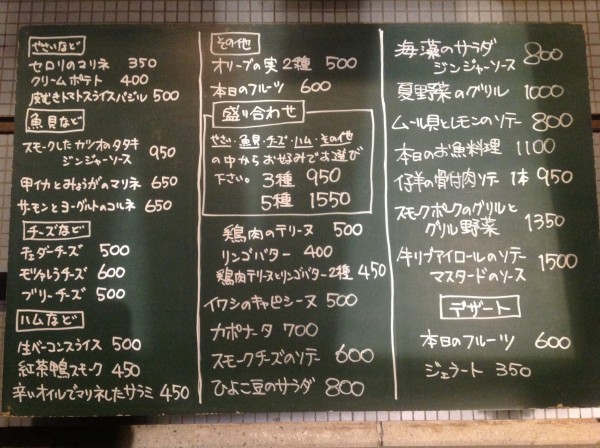 やさいなど
セロリのマリネ 350
クリームポテト 400
皮むきトマトスライスバジル 500
魚貝など
スモークしたカツオのタタキ
ジンジャーソース 950
甲イカとみょうがのマリネ 650
サーモンとヨーグルトのコルネ 650
チーズなど
チェダーチーズ 500
モツァレラチーズ 600
ブリーチーズ 500
ハムなど
生ベーコンスライス 500
紅茶鴨スモーク 450
辛いオイルでマリネしたサラミ 450
その他
オリーブの実2種 500
本日のフルーツ 600
盛り合わせ
やさい・魚貝・チーズ・ハム・その他
の中からお好みでお選び
下さい。 3種 950
5種 1550
鶏肉のテリーヌ 500
リンゴバター 400
鶏肉テリーヌとリンゴバター2種 450
イワシのキャビシーヌ 500
カポナータ 700
スモークチーズのソテー 600
ひよこ豆のサラダ 800
海藻のサラダ
ジンジャーソース 800
夏野菜のグリル 1000
ムール貝とレモンのソテー 800
本日のお魚料理 1100
仔羊の骨付肉ソテー 1本 950
スモークポークのグリルと
グリル野菜 1350
牛リブアイロールのソテー
マスタードのソース 1500
デザート
本日のフルーツ 600
ジェラート 350